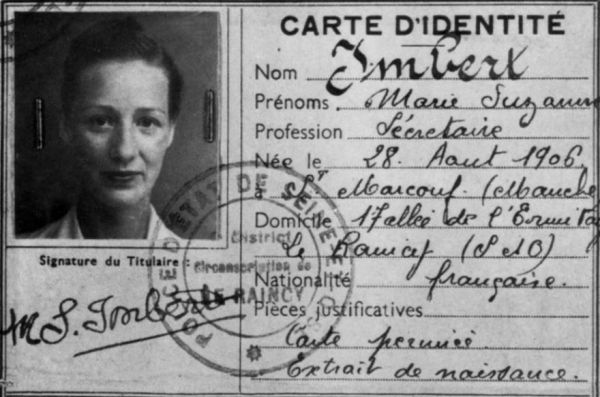 CARTE D'IDENTITÉ
Nom Imbert
Prénoms. Marie Suzanne
Profession Sécretaire
Née le 28. Aout 1906.
à St Marcouf. (Manche
Domicile 17 allée de l'Ermitag
Le Raincy (S&O)
Nationalité française.
Pièces justificatives
Carte
Extrait de naissance.
Signature du Titulaire:
M S. Imbert
ETAT DE SEINE
District
Circonscription de
LE RAINCY